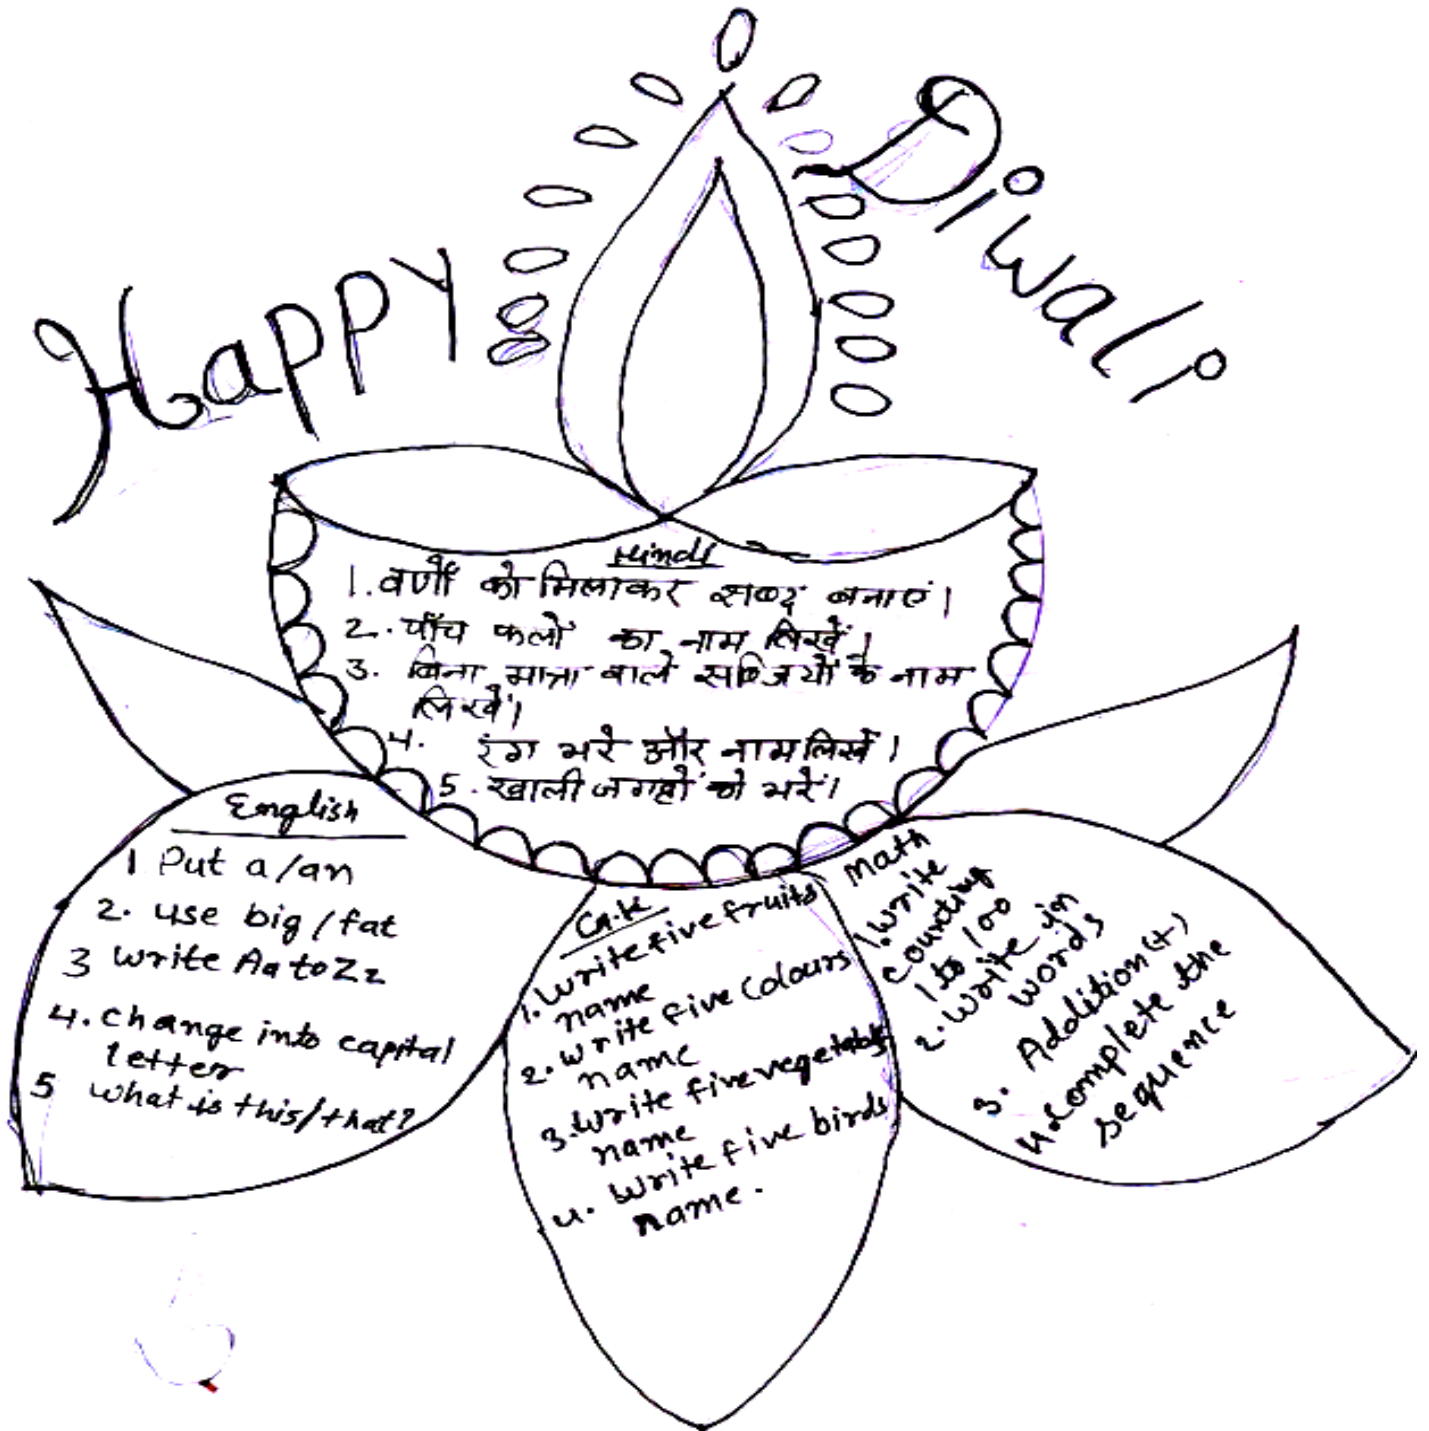 Happy Diwali
Hindi
1. वर्णों को मिलाकर शब्द बनाएं।
2. पाँच फलों का नाम लिखें।
3. बिना मात्रा वाले सब्जियों के नाम
लिखें।
4. रंग भरे और नाम लिखें।
5. खाली जगहों को भरें।
English
1 Put a/an
2. use big/fat
3 write Aa to Zz
4. change into capital
letter
5 what is this/that?
G.K
1. Write five fruits
name
2. write five colours
name
3. write five vegetables
name
4. write five birds
name.
Math
1. write
counting
1 to 100
2. write in
words
3. Addition (+)
4. complete the
sequence